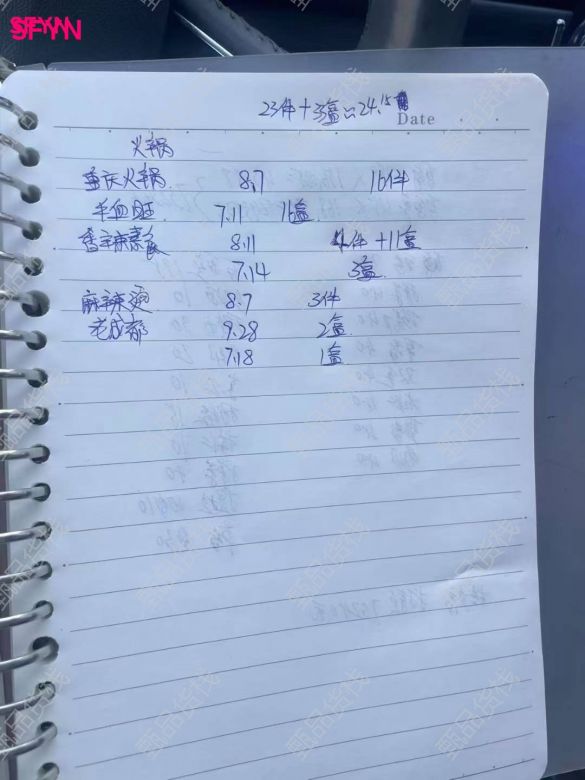 SFYN
23件+3盒≈24.15
Date
火锅
重庆火锅 8.7 16件
羊血旺 7.11 16盒
香辣素食 8.11 4件+11盒
7.14 3盒
麻辣烫 8.7 3件
老成都 9.28 2盒
7.18 1盒
甄品货栈